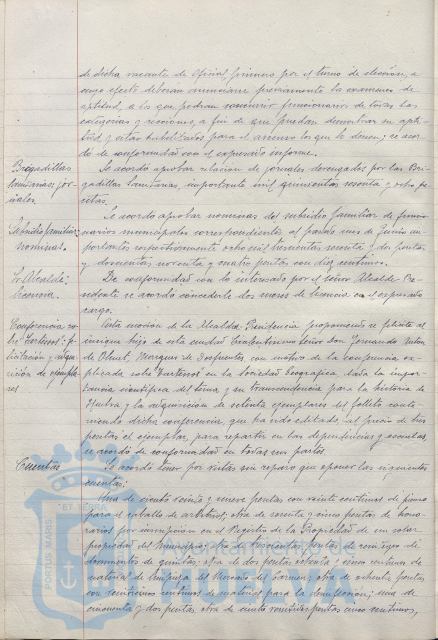 de dicha vacante de Oficial primero por el turno de elección, a
cuyo efecto deberan anunciarse previamente los examenes de
aptitud, a los que podran concurrir funcionarios de todas las
categorias y secciones, a fin de que puedan demostrar su apti-
tud y estar habilitados para el ascenso los que lo deseen; se acor-
dó de conformidad con el expresado informe.
Brigadillas
Sanitarias: jor-
nales
Se acordó aprobar relacion de jornales devengados por las Bri-
gadillas Sanitarias, importante mil quinientas sesenta y ocho pe-
setas.
Subsidio familiar:
nominas.
Se acordó aprobar nominas del subsidio familiar de funcio-
narios municipales correspondientes al pasado mes de Junio im-
portantes respectivamente ocho mil trescientas y dos pesetas
y doscientas noventa y cuatro pesetas con diez centimos.
Sr. Alcalde:
licencia.
De conformidad con lo interesado por el señor Alcalde-Pre-
sidente se acordó concederle dos meses de licencia en el expresado
cargo.
Conferencia so-
bre "Tartessos": fe-
licitación y adqui-
sición de ejempla-
res
Vista mocion de la Alcaldia Presidencia proponiendo se felicite al
insigne hijo de esta ciudad Excelentisimo Señor Don Fernando
Marques de Dosfuentes con motivo de la conferencia ex-
plicada sobre "Tartessos" en la Sociedad Geografica dada la impor-
tancia cientifica del tema y su transcendencia para la historia de
Huelva, y la adquisición de setenta ejemplares del folleto conte-
niendo dicha conferencia, que ha sido editado, al precio de tres
pesetas el ejemplar, para repartir en las dependencias y escuelas,
se acordó de conformidad en todas sus partes.
Cuentas
Se acordó tener por vistas sin reparo que oponer las siguientes
cuentas:
Una de ciento veinte y nueve pesetas con veinte centimos de pienso
para el caballo de arbitrios; otra de sesenta y cinco pesetas de hono-
rarios por inscripción en el Registro de la Propiedad de un solar
propiedad del municipio; otra de trescientas pesetas de reintegro de
documentos de quintas; otra de dos pesetas ochenta y cinco centimos de
material de limpieza del Mercado del Carmen; otra de ochenta pesetas
con centimos de material para la; una de
cincuenta y dos pesetas otra de ciento pesetas cinco centimos,
PORTUS MARIS
ET TERRÆ
Ayuntamiento de